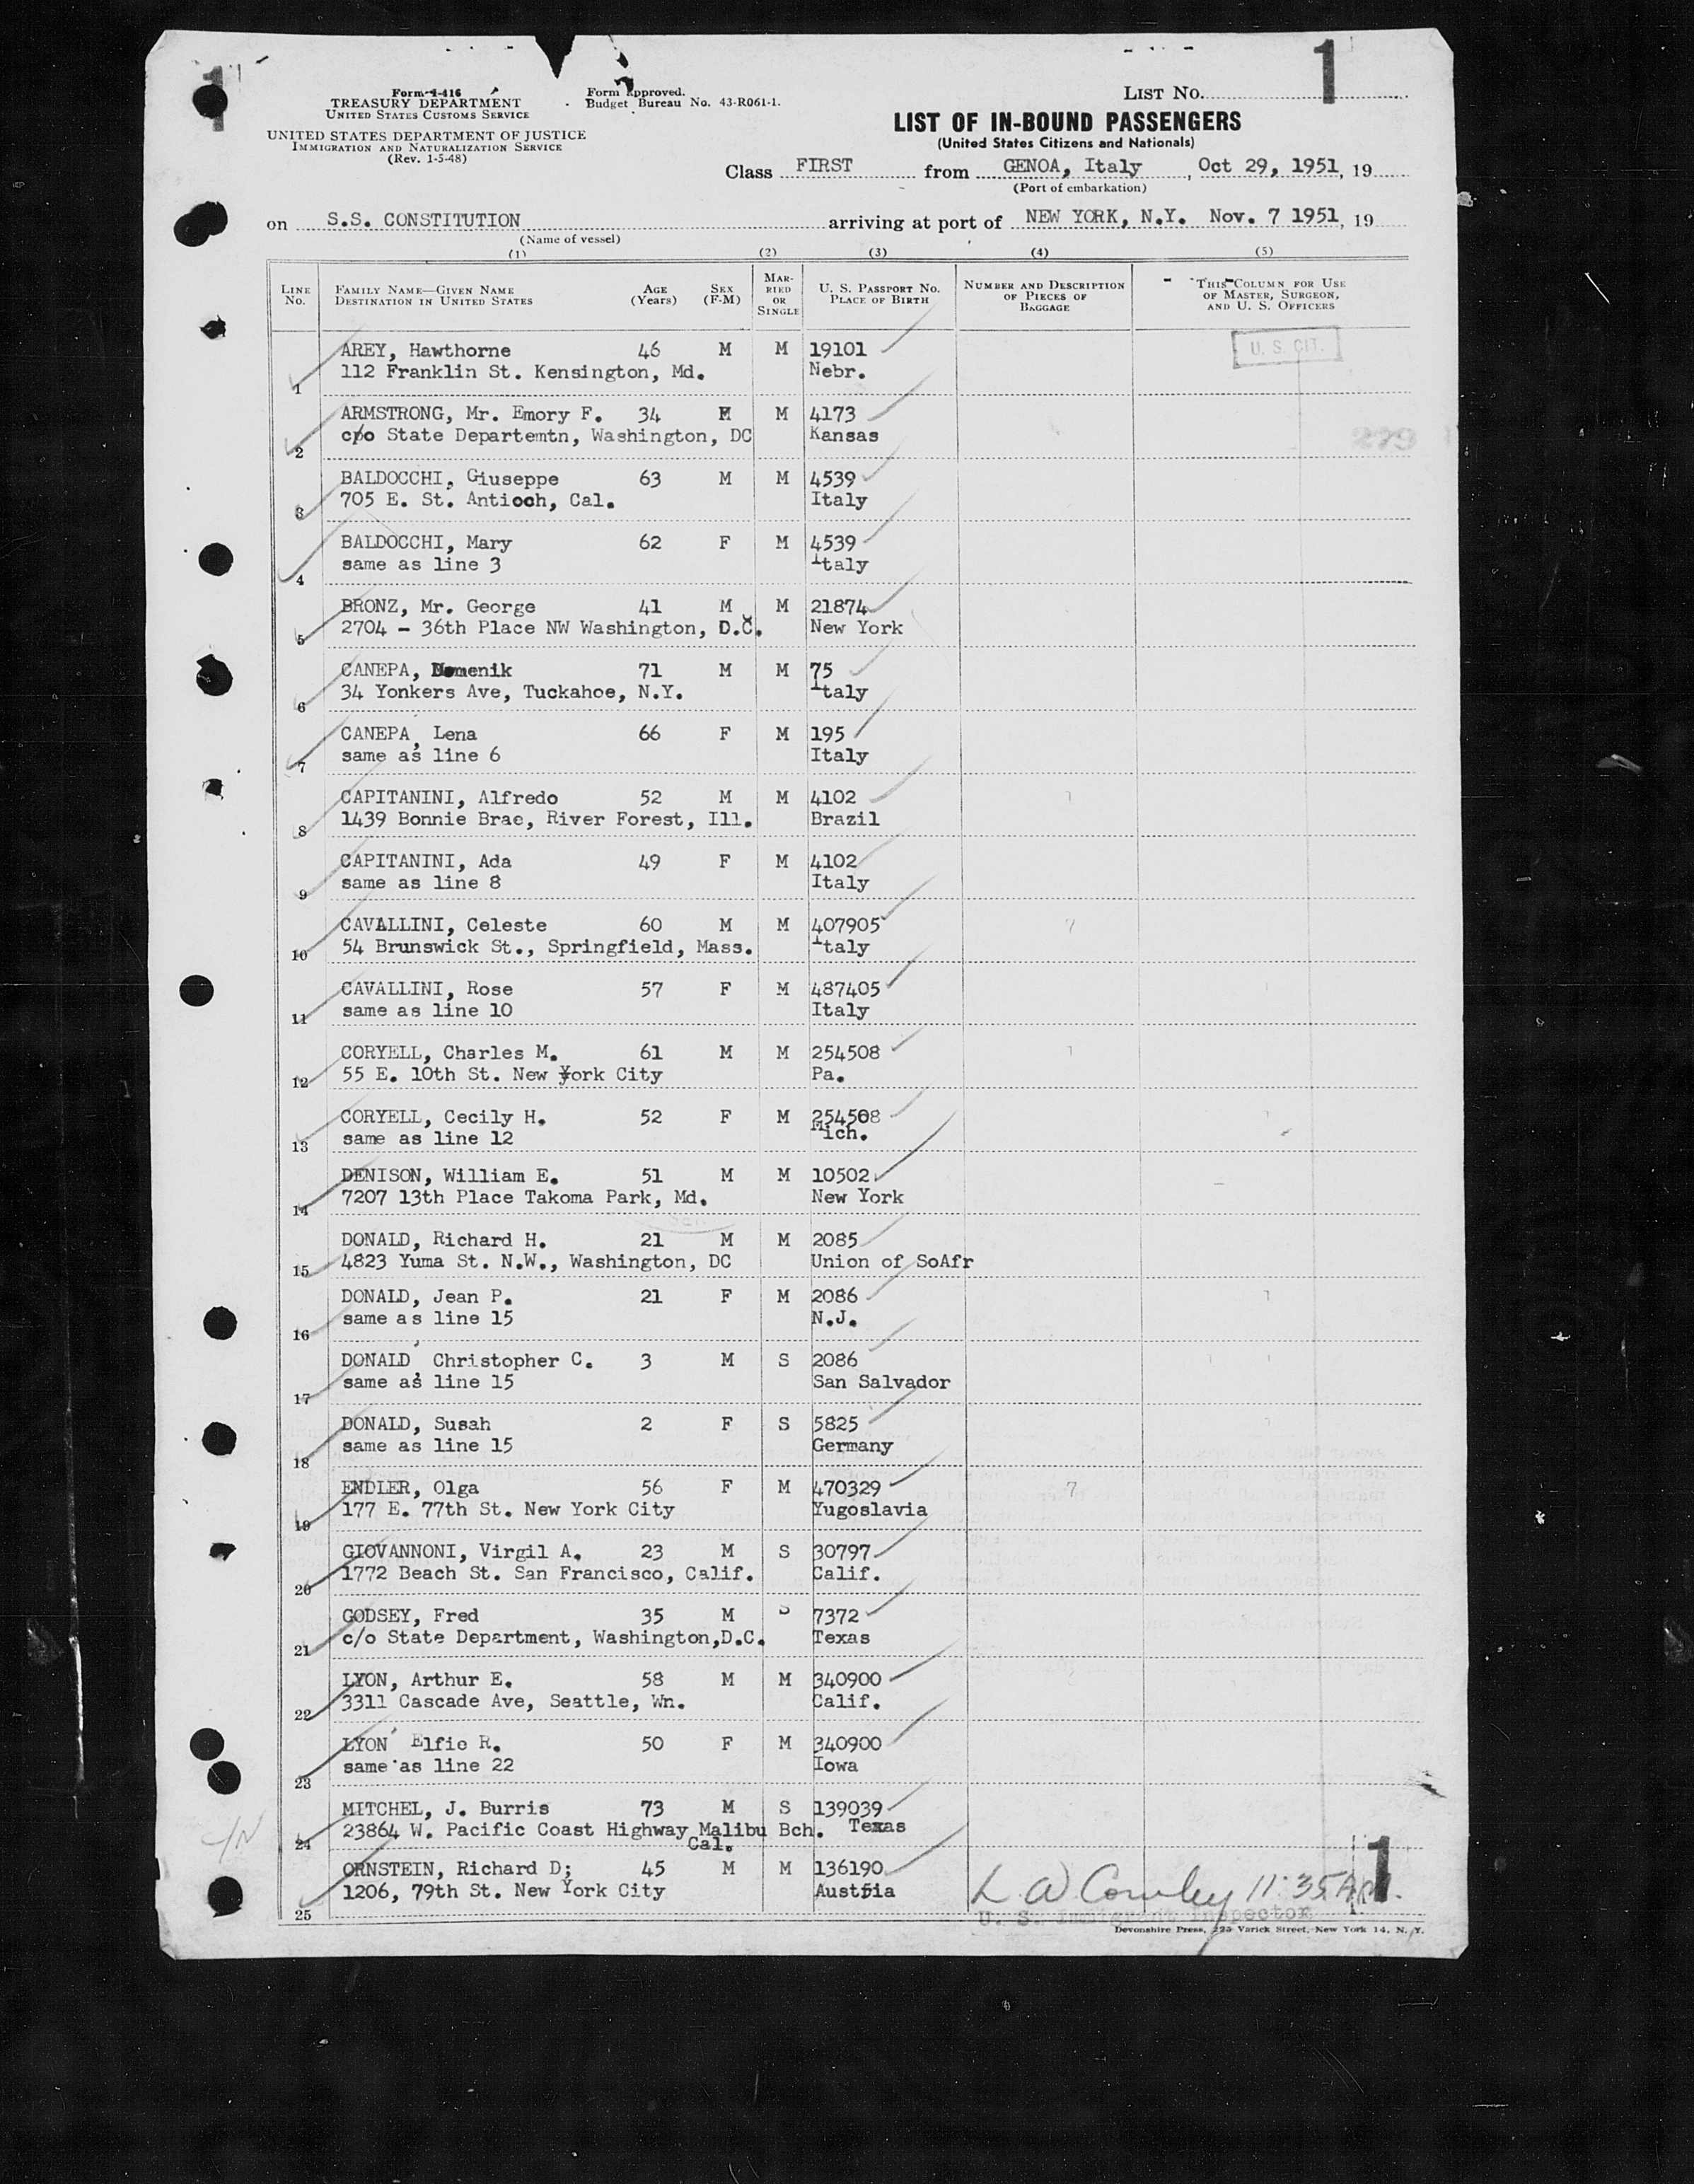 1
Form I-416
TREASURY DEPARTMENT
UNITED STATES CUSTOMS SERVICE
UNITED STATES DEPARTMENT OF JUSTICE
IMMIGRATION AND NATURALIZATION SERVICE
(Rev. 1-5-48)
Form Approved.
Budget Bureau No. 43-R061-1.
LIST No. 1
LIST OF IN-BOUND PASSENGERS
(United States Citizens and Nationals)
Class FIRST from GENOA, Italy, Oct 29, 1951, 19
(Port of embarkation)
on S.S. CONSTITUTION arriving at port of NEW YORK, N.Y. Nov. 7 1951, 19
(Name of vessel)
(1) (2) (3) (4) (5)
LINE No. FAMILY NAME—GIVEN NAME DESTINATION IN UNITED STATES AGE (Years) SEX (F-M) MARRIED OR SINGLE U. S. PASSPORT No. PLACE OF BIRTH NUMBER AND DESCRIPTION OF PIECES OF BAGGAGE THIS COLUMN FOR USE OF MASTER, SURGEON, AND U. S. OFFICERS
AREY, Hawthorne 46 M M 19101 U. S. CIT.
1 112 Franklin St. Kensington, Md. Nebr.
ARMSTRONG, Mr. Emory F. 34 M M 4173
2 c/o State Departemtn, Washington, DC Kansas
BALDOCCHI, Giuseppe 63 M M 4539
3 705 E. St. Antioch, Cal. Italy
BALDOCCHI, Mary 62 F M 4539
4 same as line 3 Italy
BRONZ, Mr. George 41 M M 21874
5 2704 - 36th Place NW Washington, D.C. New York
CANEPA, Domenik 71 M M 75
6 34 Yonkers Ave, Tuckahoe, N.Y. Italy
CANEPA, Lena 66 F M 195
7 same as line 6 Italy
CAPITANINI, Alfredo 52 M M 4102
8 1439 Bonnie Brae, River Forest, Ill. Brazil
CAPITANINI, Ada 49 F M 4102
9 same as line 8 Italy
CAVALLINI, Celeste 60 M M 407905
10 54 Brunswick St., Springfield, Mass. Italy
CAVALLINI, Rose 57 F M 487405
11 same as line 10 Italy
CORYELL, Charles M. 61 M M 254508
12 55 E. 10th St. New York City Pa.
CORYELL, Cecily H. 52 F M 254508
13 same as line 12 Mich.
DENISON, William E. 51 M M 10502
14 7207 13th Place Takoma Park, Md. New York
DONALD, Richard H. 21 M M 2085
15 4823 Yuma St. N.W., Washington, DC Union of SoAfr
DONALD, Jean P. 21 F M 2086
16 same as line 15 N.J.
DONALD, Christopher C. 3 M S 2086
17 same as line 15 San Salvador
DONALD, Susah 2 F S 5825
18 same as line 15 Germany
ENDLER, Olga 56 F M 470329
19 177 E. 77th St. New York City Yugoslavia
GIOVANNONI, Virgil A. 23 M S 30797
20 1772 Beach St. San Francisco, Calif. Calif.
GODSEY, Fred 35 M S 7372
21 c/o State Department, Washington,D.C. Texas
LYON, Arthur E. 58 M M 340900
22 3311 Cascade Ave, Seattle, Wn. Calif.
LYON Elfie R. 50 F M 340900
23 same as line 22 Iowa
MITCHEL, J. Burris 73 M S 139039
24 23864 W. Pacific Coast Highway Malibu Bch. Texas
Cal.
ORNSTEIN, Richard D; 45 M M 136190
25 1206, 79th St. New York City Austria
11:35 AM. 1
U. S. Immigrant Inspector
Devonshire Press, 225 Varick Street, New York 14, N. Y.